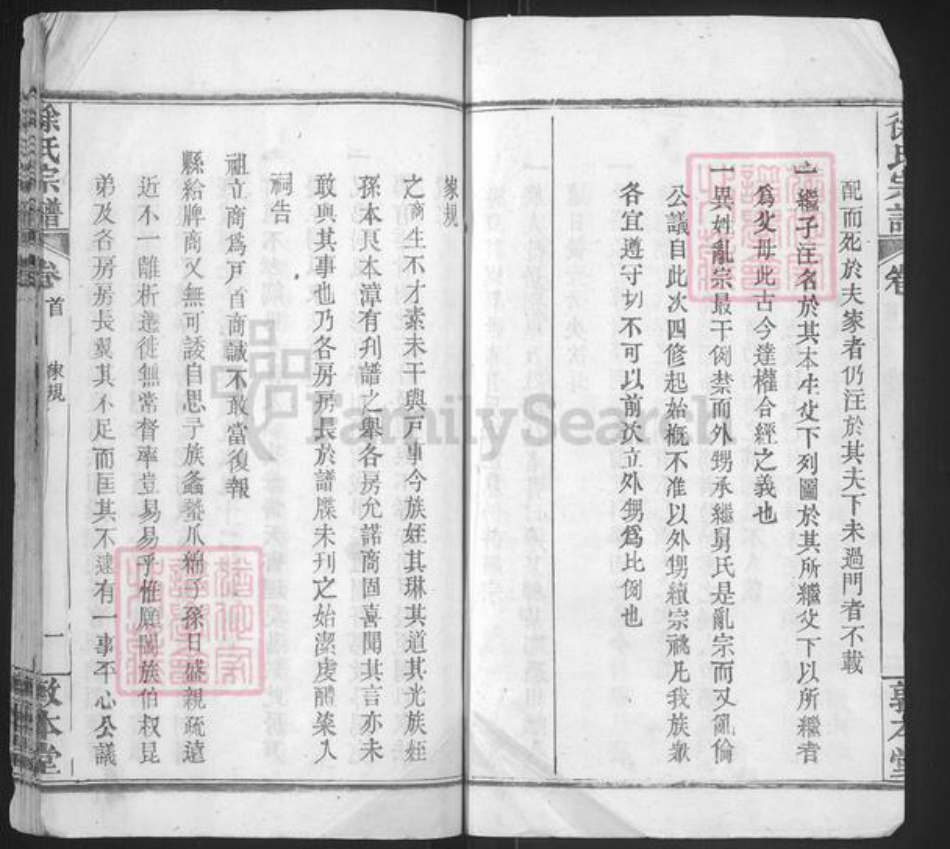 配而死於夫家者仍注於其夫下未過門者不載
一繼子注名於其本生父下列圖於其所繼父下以所繼者
為父母此古今達權合經之義也
一異姓亂宗最干例禁而外甥承繼舅氏是亂宗而又亂倫
公議自此次四修起始概不准以外甥續宗祧凡我族衆
各宜遵守切不可以前次立外甥爲比例也
家規
之商生不才素未干與戶事今族姪其琳其道其光族姪
孫本艮本漳有刋譜之舉各房允諾商固喜聞其言亦未
敢與其事也乃各房房長於譜牒未刋之始潔虔醴粢入
祠告
祖立商爲戶首商誠不敢當復報
縣給牌商又無可諉自思子族螽蟄爪綿子孫日盛親疏遠
近不一離析遷徙無常督率豈易易乎惟願闔族伯叔昆
弟及各房房長翼其不足而匡其不逮有一事平心公議
徐氏宗譜
卷首
家規
一
敦本堂
徐氏宗譜
卷
敦本堂
FamilySearch